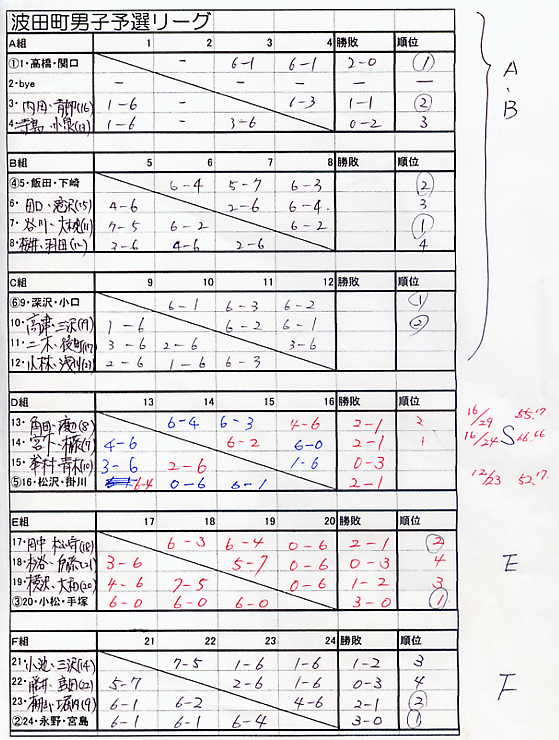 波田町男子予選リーグ
A組 1 2 3 4 勝敗 順位
①1・高橋・関口 - 6-1 6-1 2-0 ①
2・bye - - - - -
3・内田・ (16) 1-6 - 1-3 1-1 ②
4・寺島・小泉(13) 1-6 3-6 0-2 3
A・B
B組 5 6 7 8 勝敗 順位
④5・飯田・下崎 6-4 5-7 6-3 ②
6・田口・滝沢(15) 4-6 2-6 6-4 3
7・谷川・大槻(11) 7-5 6-2 6-2 ①
8・ ・羽田 3-6 4-6 2-6 4
C組 9 10 11 12 勝敗 順位
⑥9・深沢・小口 6-1 6-3 6-2 ①
10・高津・三沢(19) 1-6 6-2 6-1 ②
11・二木・ (17) 3-6 2-6 3-6
12・小林・浅川 2-6 1-6 6-3
D組 13 14 15 16 勝敗 順位
13・角田・渡辺(8) 6-4 6-3 4-6 2-1 2
14・宮下・ (7) 4-6 6-2 6-0 2-1 1
15・ 村・青木(10) 3-6 2-6 1-6 0-3
⑤16・松沢・掛川 6-4 0-6 6-1 2-1
16/29 55.17
16/24 S 66.66
12/23 52.17
E組 17 18 19 20 勝敗 順位
17・田中 松崎(18) 6-3 6-4 0-6 2-1 ②
18・ 谷・ 藤(21) 3-6 5-7 0-6 0-3 4
19・横沢・大 (20) 4-6 7-5 0-6 1-2 3
③20・小松・手塚 6-0 6-0 6-0 3-0 ①
E
F組 21 22 23 24 勝敗 順位
21・小池・三沢(14) 7-5 1-6 1-6 1-2 3
22・藤井・ 田(22) 5-7 2-6 1-6 0-3 4
23・ (9) 6-1 6-2 4-6 2-1 ②
②24・永野・宮島 6-1 6-1 6-4 3-0 ①
F